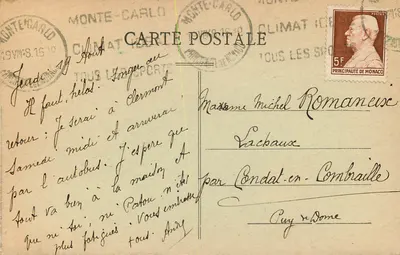 MONTE-CARLO
MONTE-CARLO
CLIMAT IDE
TOUS LES SPORTS
MONTE-CARLO
CARTE POSTALE
5F
PRINCIPAUTÉ DE MONACO
Jeudi 19 Août
Il faut, hélas! songer au
retour: Je serai à Clermont
Samedi midi et arriverai
par l'autobus. J'espère que
tout va bien à la maison et
que ni toi, ni Patou n'êtes
plus fatigués. Vous embrasse
tous. André
Madame Michel Romaneix
Lachaux
par Condat-en-Combraille
Puy de Dome